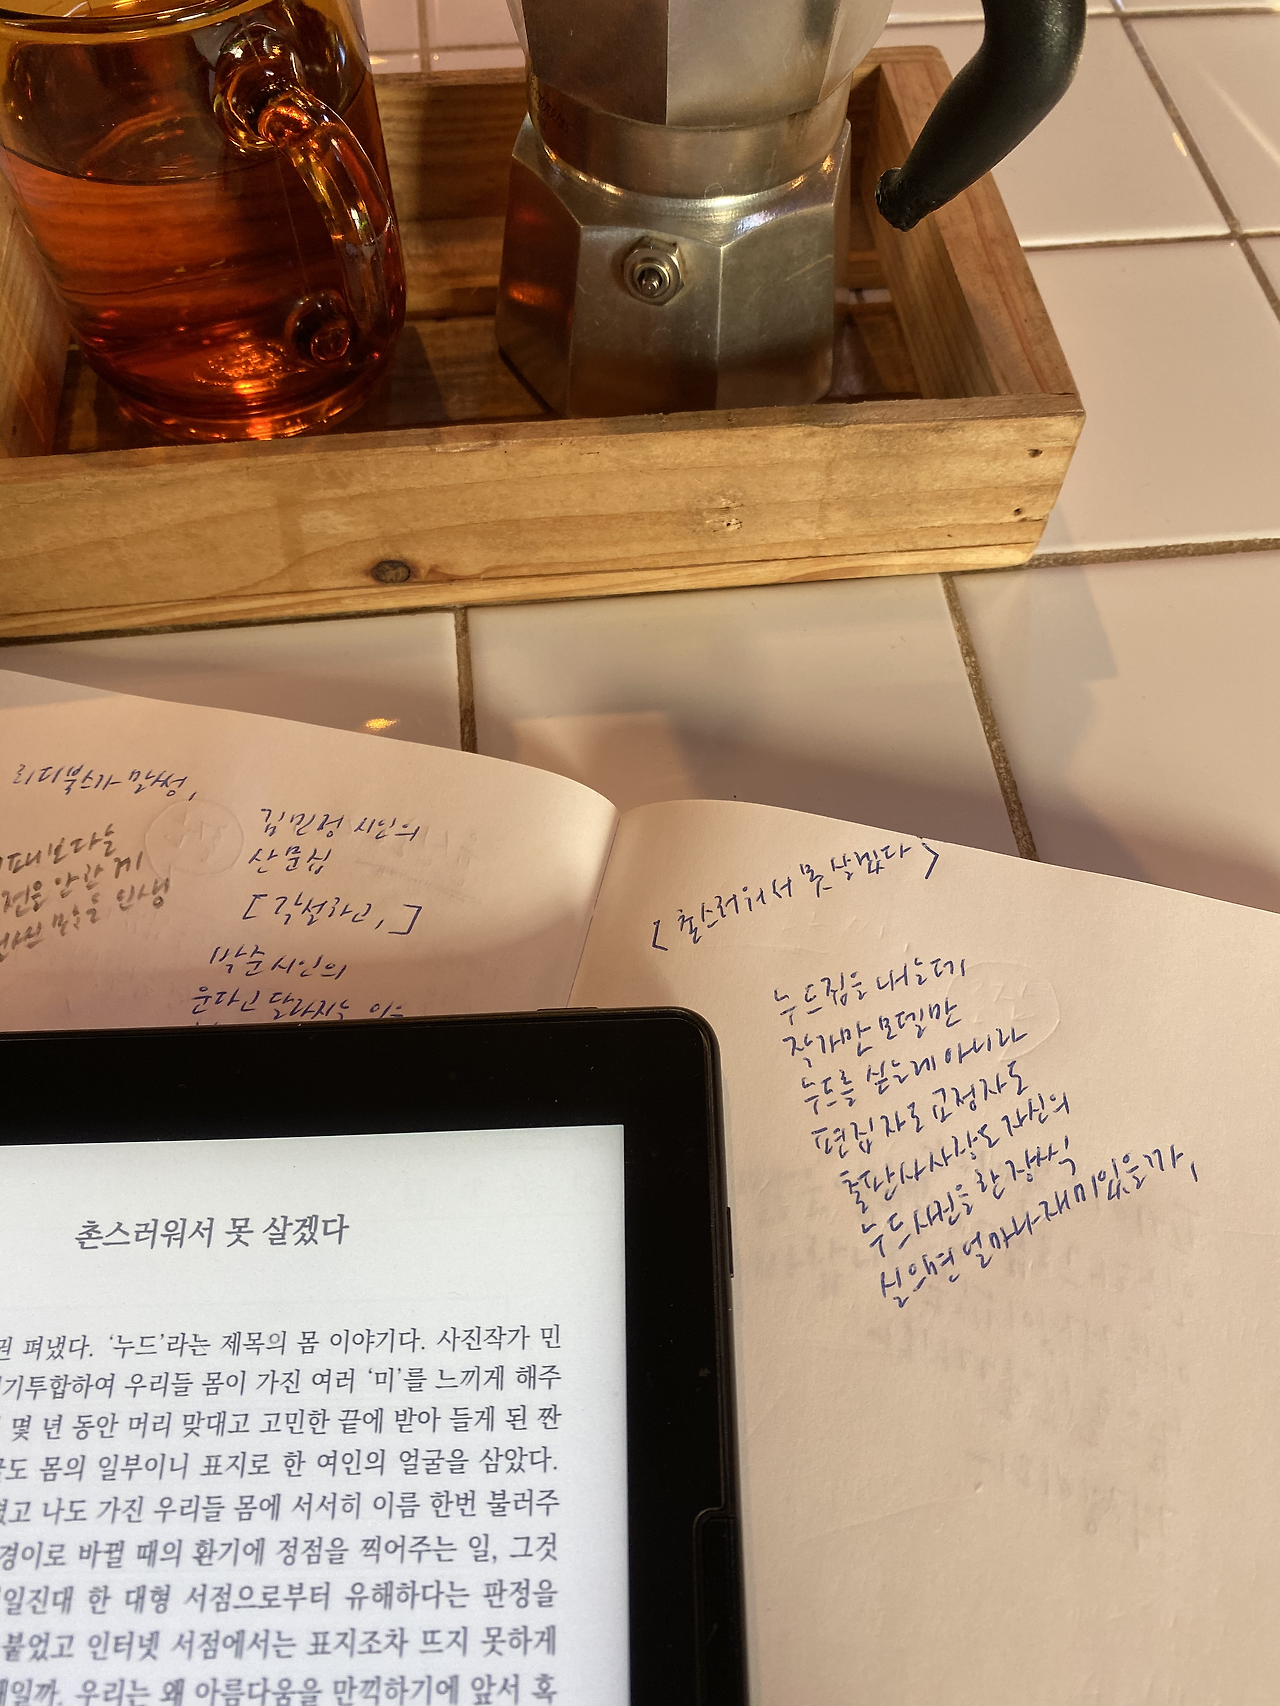 리디북스가 말썽,
김민정 시인의
산문집
[각설하고,]
박준 시인의
운다고 달라지는
보다는
안 한 게
인생
[촌스러워서 못 살겠다]
누드집을 내는데
작가만 모델만
누드를 싣는게 아니라
편집자도 교정자도
출판사 사장도 자신의
누드 사진을 한 장씩
실으면 얼마나 재미있을까,
촌스러워서 못 살겠다
권 펴냈다. ‘누드’라는 제목의 몸 이야기다. 사진작가 민
기투합하여 우리들 몸이 가진 여러 ‘미’를 느끼게 해주
몇 년 동안 머리 맞대고 고민한 끝에 받아 들게 된 짠
도 몸의 일부이니 표지로 한 여인의 얼굴을 삼았다.
고 나도 가진 우리들 몸에 서서히 이름 한번 불러주
경이로 바뀔 때의 환기에 정점을 찍어주는 일, 그것
일진대 한 대형 서점으로부터 유해하다는 판정을
붙었고 인터넷 서점에서는 표지조차 뜨지 못하게
일까. 우리는 왜 아름다움을 만끽하기에 앞서 혹